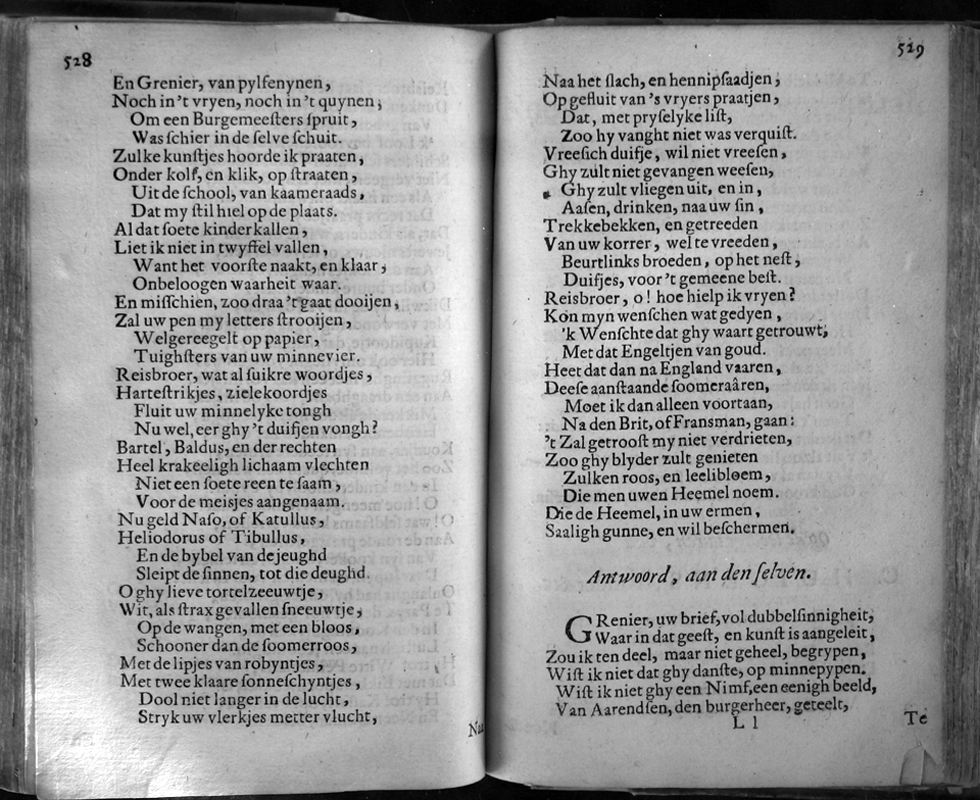 528
En Grenier, van pylſenynen,
Noch in 't vryen, noch in 't quynen;
Om een Burgemeeſters ſpruit,
Was ſchier in de ſelve ſchuit.
Zulke kunſtjes hoorde ik praaten,
Onder kolf, en klik, op ſtraaten,
Uit de ſchool, van kaameraads,
Dat my ſtil hiel op de plaats.
Al dat ſoete kinderkallen,
Liet ik niet in twyffel vallen,
Want het voorſte naakt, en klaar,
Onbeloogen waarheit waar.
En miſſchien, zoo draa 't gaat dooijen,
Zal uw pen my letters ſtrooijen,
Welgereegelt op papier,
Tuighſters van uw minnevier.
Reisbroer, wat al ſuikre woordjes,
Harteſtrikjes, zielekoordjes
Fluit uw minnelyke tongh
Nu wel, eer ghy 't duifjen vongh?
Bartel, Baldus, en der rechten
Heel krakeeligh lichaam vlechten
Niet een ſoete reen te ſaam,
Voor de meisjes aangenaam.
Nu geld Naſo, of Katullus,
Heliodorus of Tibullus,
En de bybel van de jeughd
Sleipt de ſinnen, tot die deughd.
O ghy lieve tortelzeeuwtje,
Wit, als ſtrax gevallen ſneeuwtje,
Op de wangen, met een bloos,
Schooner dan de ſoomerroos,
Met de lipjes van robyntjes,
Met twee klaare ſonneſchyntjes,
Dool niet langer in de lucht,
Stryk uw vlerkjes metter vlucht,
Naa
529
Naa het ſlach, en hennipſaadjen;
Op gefluit van 's vryers praatjen,
Dat, met pryſelyke liſt,
Zoo hy vanght niet was verquiſt.
Vreeſich duifje, wil niet vreeſen,
Ghy zult niet gevangen weeſen,
Ghy zult vliegen uit, en in,
Aaſen, drinken, naa uw ſin,
Trekkebekken, en getreeden
Van uw korrer, wel te vreeden,
Beurtlinks broeden, op het neſt,
Duifjes, voor 't gemeene beſt.
Reisbroer, o! hoe hielp ik vryen?
Kon myn wenſchen wat gedyen,
'k Wenſchte dat ghy waart getrouwt,
Met dat Engeltjen van goud.
Heet dat dan na England vaaren,
Deeſe aanſtaande ſoomeraâren,
Moet ik dan alleen voortaan,
Na den Brit, of Fransman, gaan:
't Zal getrooſt my niet verdrieten,
Zoo ghy blyder zult genieten
Zulken roos, en leelibloem,
Die men uwen Heemel noem.
Die de Heemel, in uw ermen,
Saaligh gunne, en wil beſchermen.
Antwoord, aan den ſelven.
GRenier, uw brief, vol dubbelſinnigheit,
Waar in dat geeſt, en kunſt is aangeleit,
Zou ik ten deel, maar niet geheel, begrypen,
Wiſt ik niet dat ghy danſte, op minnepypen.
Wiſt ik niet ghy een Nimf, een eenigh beeld,
Van Aarendſen, den burgerheer, geteelt,
L l
Te